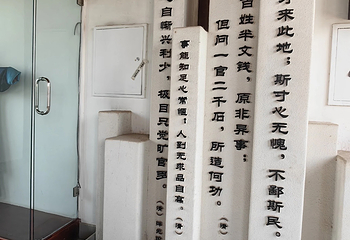 来此地；斯寸心无愧，不鄙斯民。
（清）
百姓半文钱，原非异事；
但问一官二千石，所造何功。
（清）
事能知足心常惬；人到无求品自高。
（清）
自惭兴利少，极目只觉旷官多。
（清）